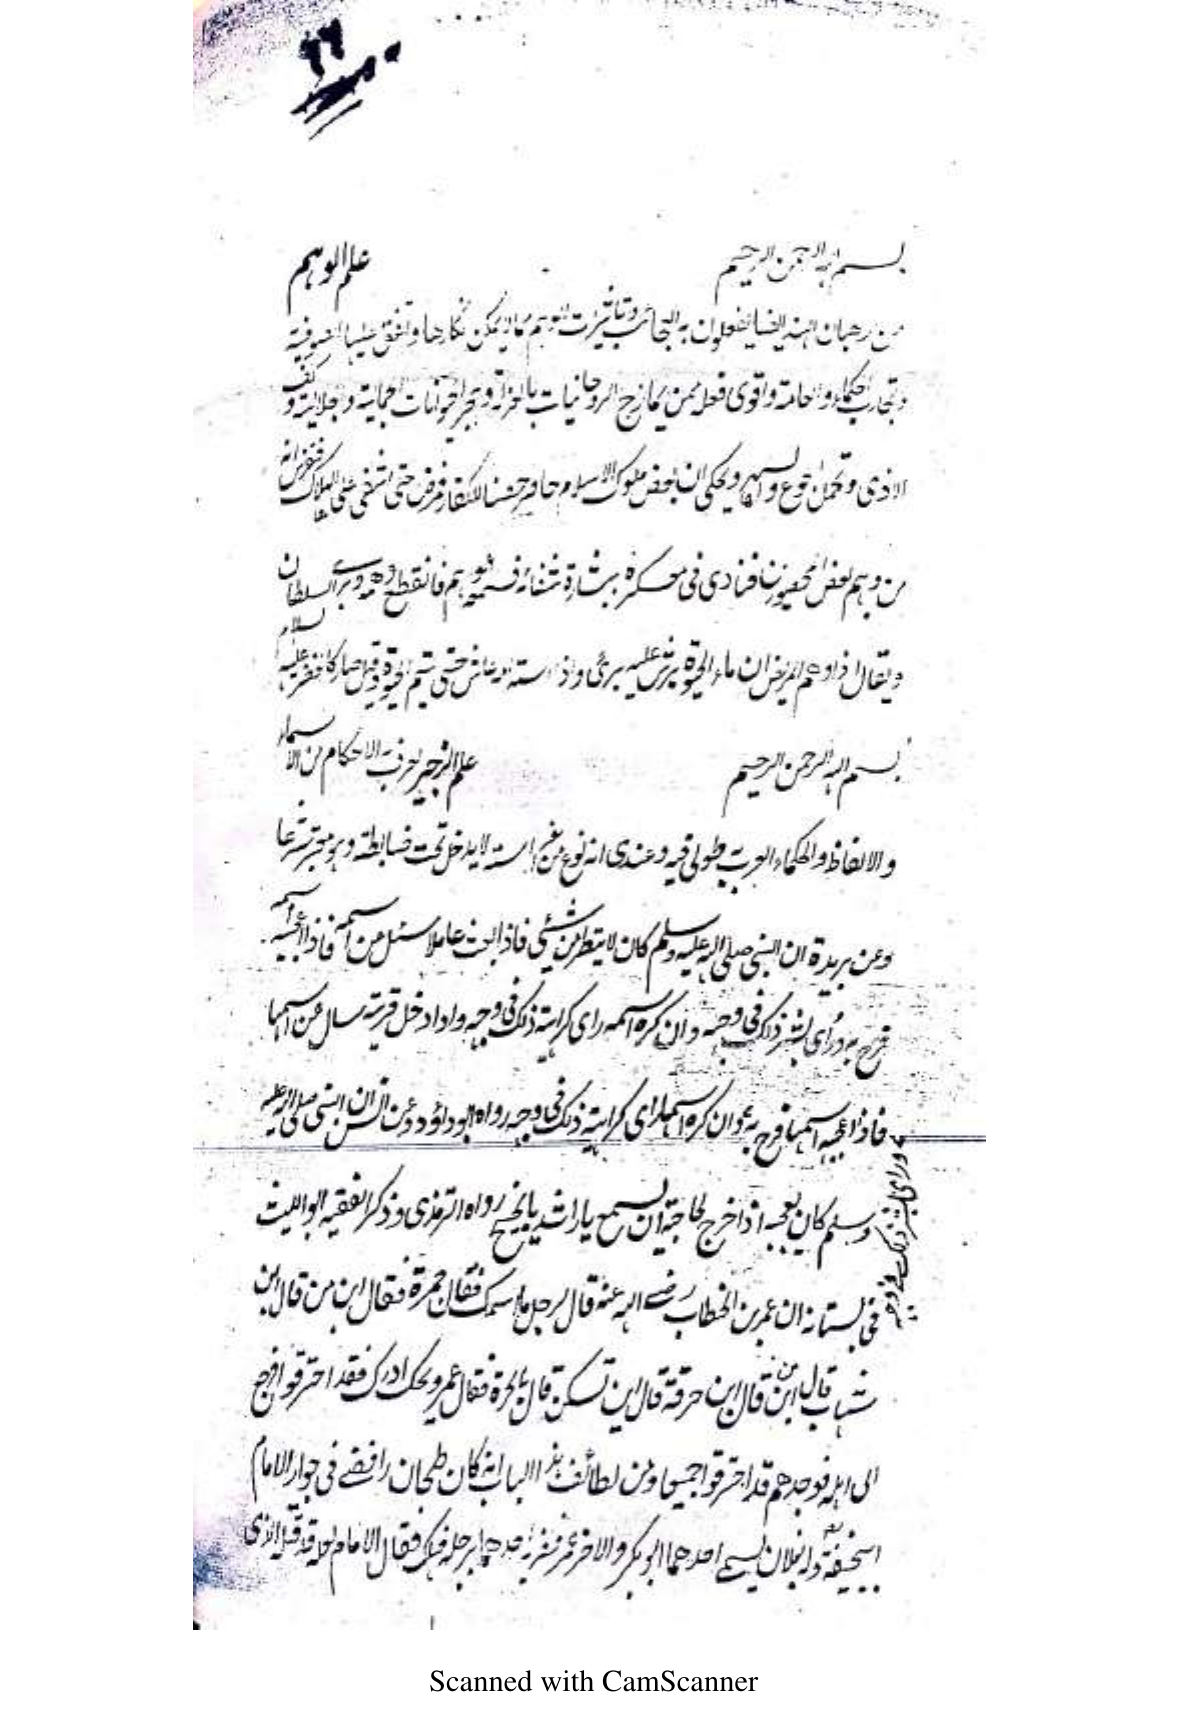 ٩٩
بسم الله الرحمن الرحيم علم الوهم
من رهبان الهند ايضا يفعلون به العجائب وتاثيرات الوهم مما لا يمكن انكارها واتفق عليها الصوفية
وتجارب الحكماء والعامة واقوى فعله ممن يمازج الروحانيات بالعزلة وبحر الحيوانات الجمالية والجلالية وكف
الاذى وتحمل الجوع والسهر ويحكى ان بعض ملوك الاسلام حاصر حصنا للكفار فمرض حتى اشفى على الهلاك فتفرس انه
من وهم بعض المحصورين فنادى فى معسكره ببشارة شفائه فسمعه فانقطع وهمه وبرئ السلطان
ويقال اذا وهم المريض ان ماء الحيوة يرش عليه برئ واذا عاش حتى تتم الحيوة وقيل صار كالخضر عليه السلام
بسم الله الرحمن الرحيم علم الزجر يعرف به الاحكام من الاسماء
والالفاظ والحكماء العرب طولى فيه وعندى انه نوع من لا يدخل تحت ضابطة وهو معتبر شرعا
وعن بريدة ان النبى صلى الله عليه وسلم كان لا يتطير من شئ فاذا بعث عاملا سئل من اسمه فاذا اعجبه اسمه
فرح به ورأى بشر ذلك فى وجهه وان كره اسمه راى كراهته ذلك فى وجهه واذا دخل قرية سال عن اسمها
فاذا اعجبه اسمها فرح به وان كره اسمها راى كراهية ذلك فى وجهه رواه ابو داؤد وعن انس ان النبى صلى الله عليه
وراى بشر ذلك فى وجهه
وسلم كان يعجبه اذا خرج لحاجة ان يسمع يا راشد يا نجيح رواه الترمذى وذكر الفقيه ابو الليث
فى بستانه ان عمر بن الخطاب رضى الله عنه قال لرجل ما اسمك فقال جمرة فقال ابن من قال ابن
شهاب قال ابن من قال ابن حرقة قال اين تسكن قال بالحرة فقال عمر ويحك ادرك فقد احترقوا فرجع
الى اهله فوجدهم قد احترقوا جميعا ومن لطائف هذا الباب انه كان طحان رافضى فى جوار الامام
ابى حنيفة وله بغلان يسمى احدهما ابو بكر والاخر عمر فضربه احدهما برجله فهلك فقال الامام لعله قد قتله الذى